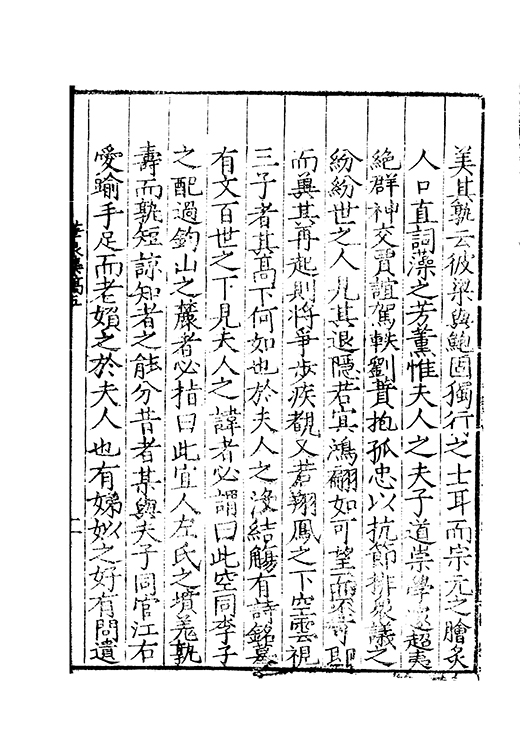 美且孰云彼梁與鮑固獨行之士耳而宗元之膾炙
人口直詞藻之芳薰惟夫人之夫子道崇學邃超夷
絕群神交賈誼駕軼劉蕡抱孤忠以抗節排衆議之
紛紛世之人見其退隱若冥鴻翩如可望而不可即
而冀其再起則將爭步疾覩又若翔鳳之下空雲視
三子者其高下何如也於夫人之沒結觴有詩銘墓
有文百世之下見夫人之諱者必謂曰此空同李子
之配過鈞山之麓者必指曰此宜人左氏之墳羌孰
壽而孰短諒知者之能分昔者某與夫子同官江右
愛踰手足而老嬪之於夫人也有娣姒之好有問遺